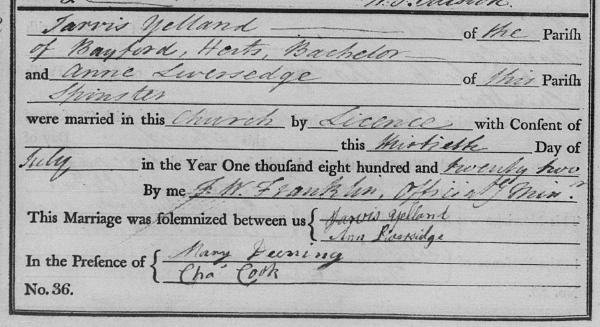 Jarvis Yelland of the Parish
of Bayford, Herts, Bachelor
and Anne Liversedge of this Parish
Spinster
were married in this Church by Licence with Consent of
this thirtieth Day of
July in the Year One thousand eight hundred and twenty two
By me J. W. Franklin, Officiatg Minr.
This Marriage was solemnized between us { Jarvis Yelland
Ann
In the Presence of { Mary Deering
Chas Cook
No. 36.